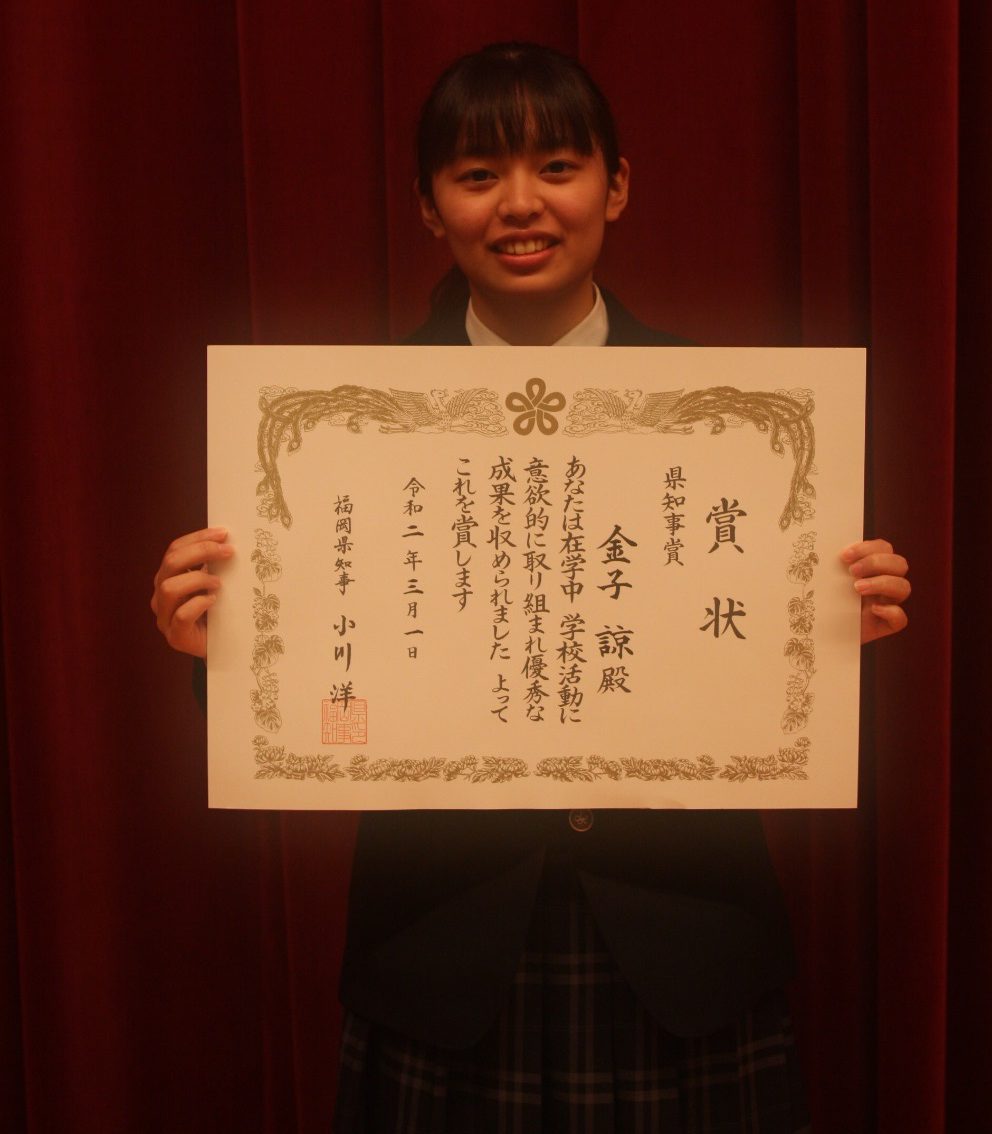 賞状
県知事賞
金子 諒殿
あなたは在学中 学校活動に
意欲的に取り組まれ優秀な
成果を収められました よって
これを賞します
令和二年三月一日
福岡県知事 小川 洋